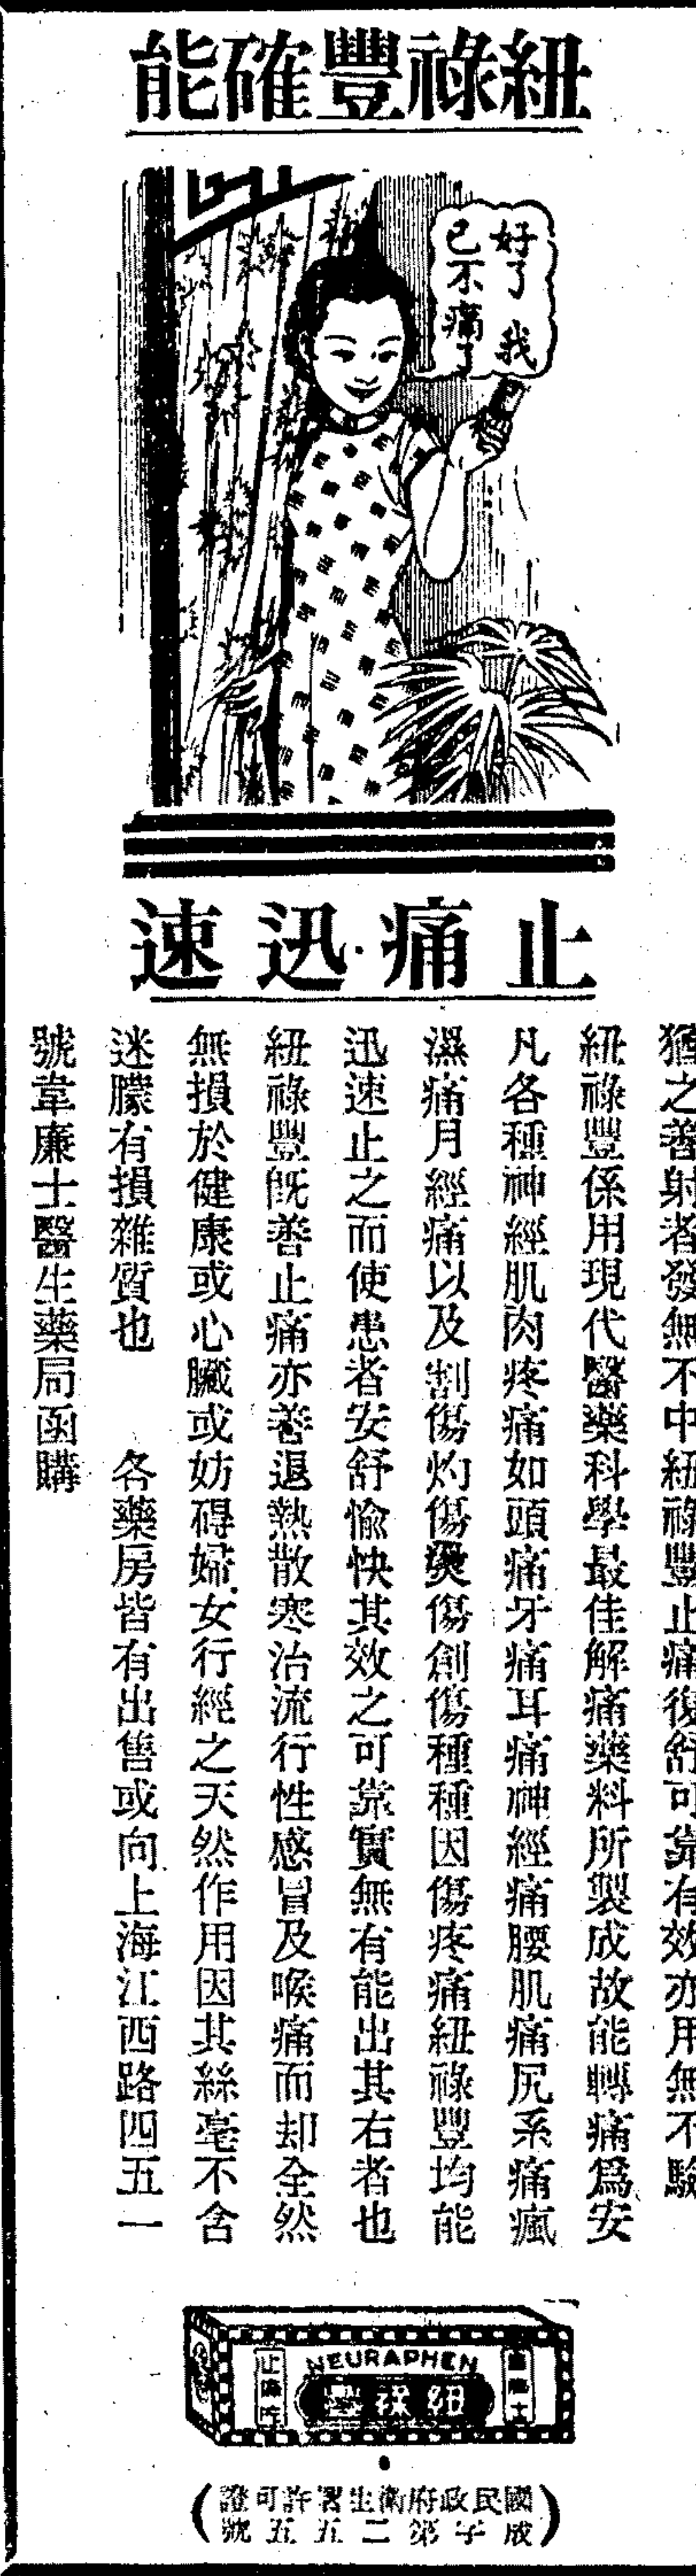 紐祿豐確能
好了 我
已不痛了
止痛迅速
猶之善射者發無不中紐祿豐止痛復舒可靠有效亦用無不驗
紐祿豐係用現代醫藥科學最佳解痛藥料所製成故能轉痛爲安
凡各種神經肌肉疼痛如頭痛牙痛耳痛神經痛腰肌痛尻系痛瘋
濕痛月經痛以及割傷灼傷燙傷創傷種種因傷疼痛紐祿豐均能
迅速止之而使患者安舒愉快其效之可靠實無有能出其右者也
紐祿豐既善止痛亦善退熱散寒治流行性感冒及喉痛而却全然
無損於健康或心臟或妨碍婦女行經之天然作用因其絲毫不含
迷朦有損雜質也 各藥房皆有出售或向上海江西路四五一
號韋廉士醫生藥局函購
NEURAPHEN
紐祿豐
止痛
國民政府衛生署許可證
成字第二五五號